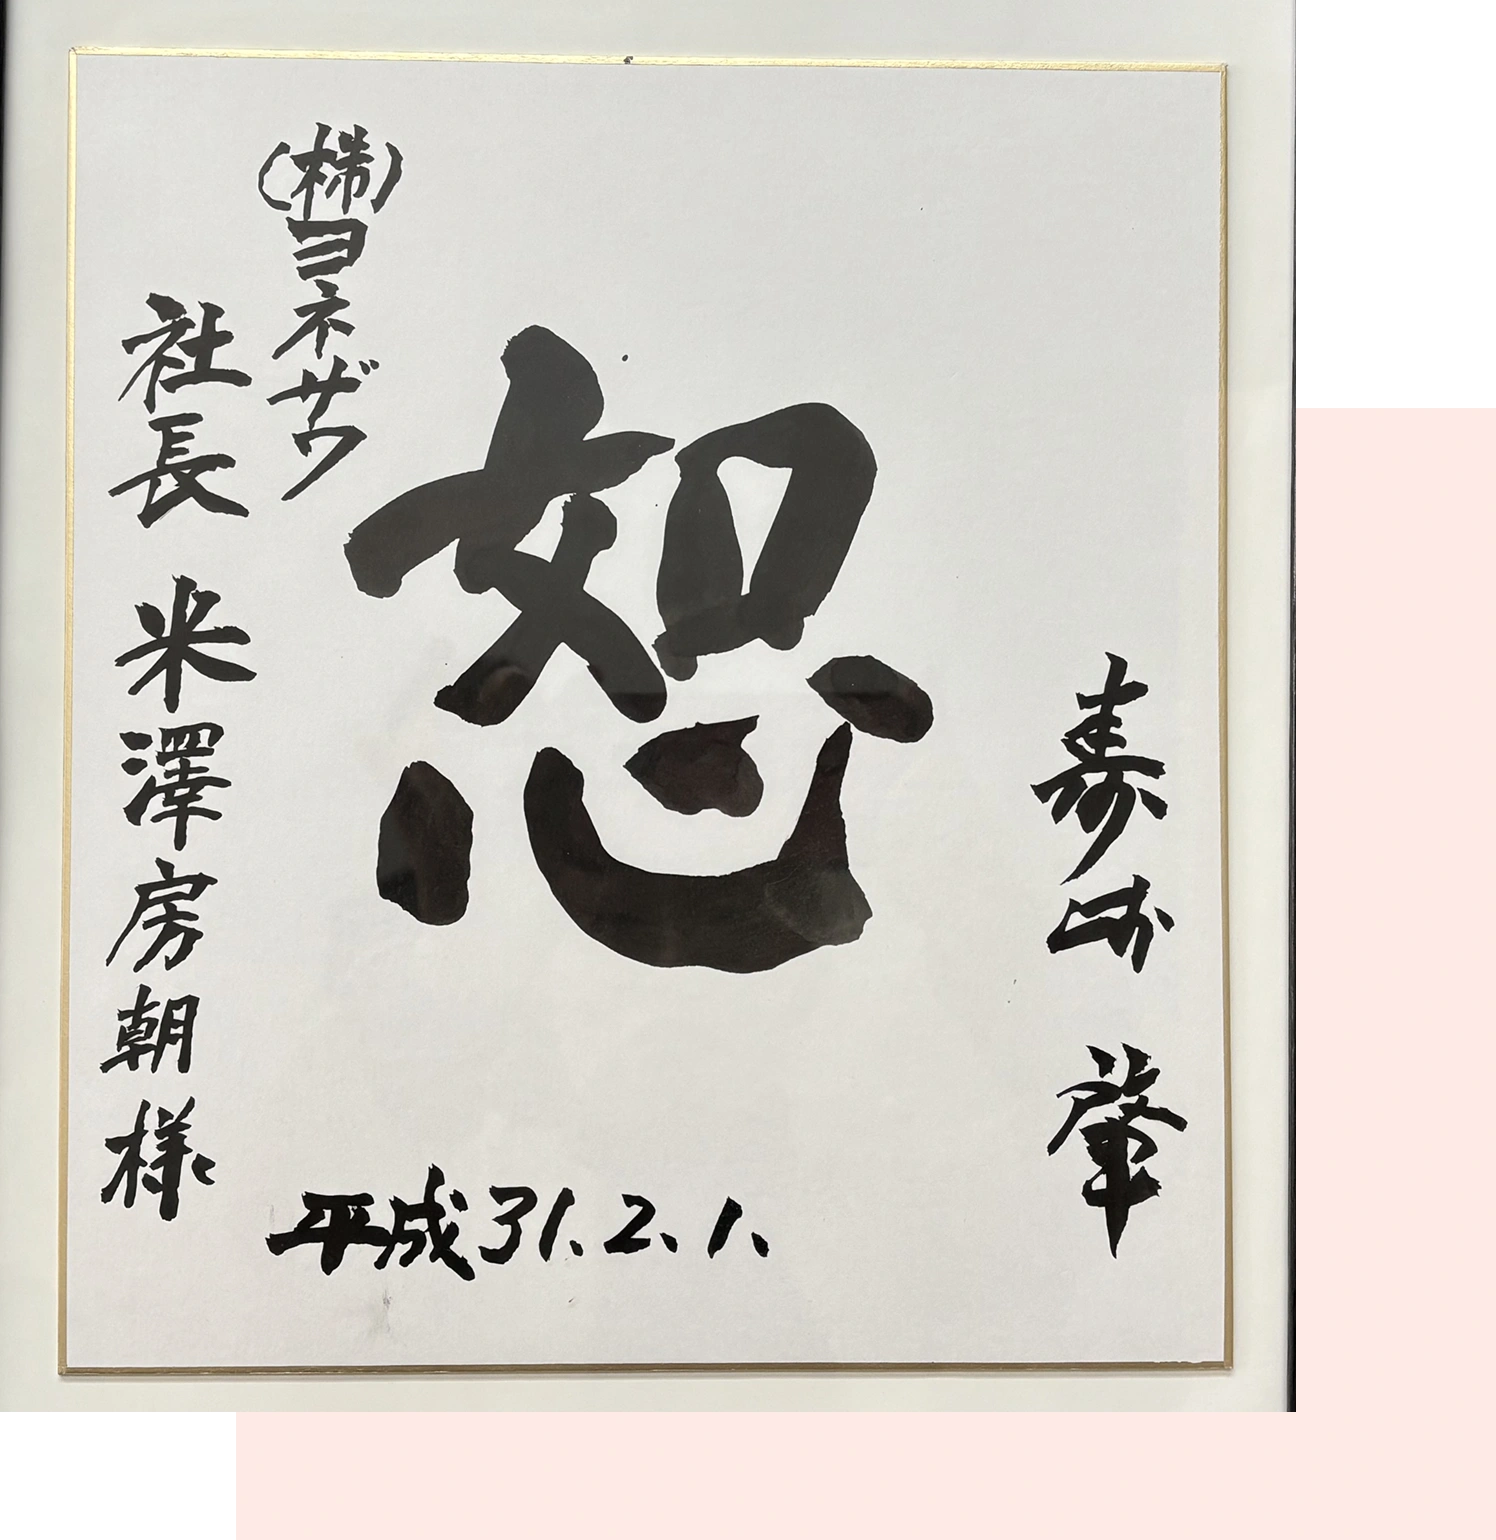 寿崎 肇
恕
平成31.2.1.
(株)ヨネザワ
社長 米澤房朝様